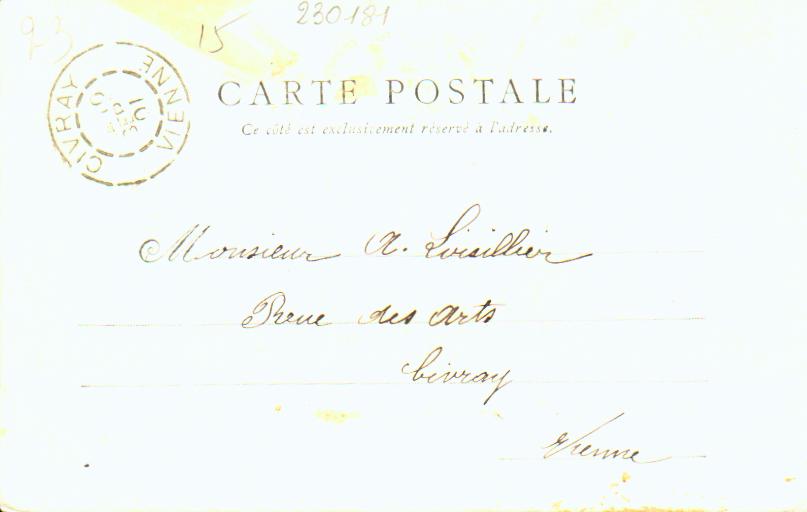 23
15
230181
CIVRAY VIENNE
CARTE POSTALE
Ce côté est exclusivement réservé à l'adresse.
Monsieur A. Loisillier
Rue des Arts
Civray
Vienne